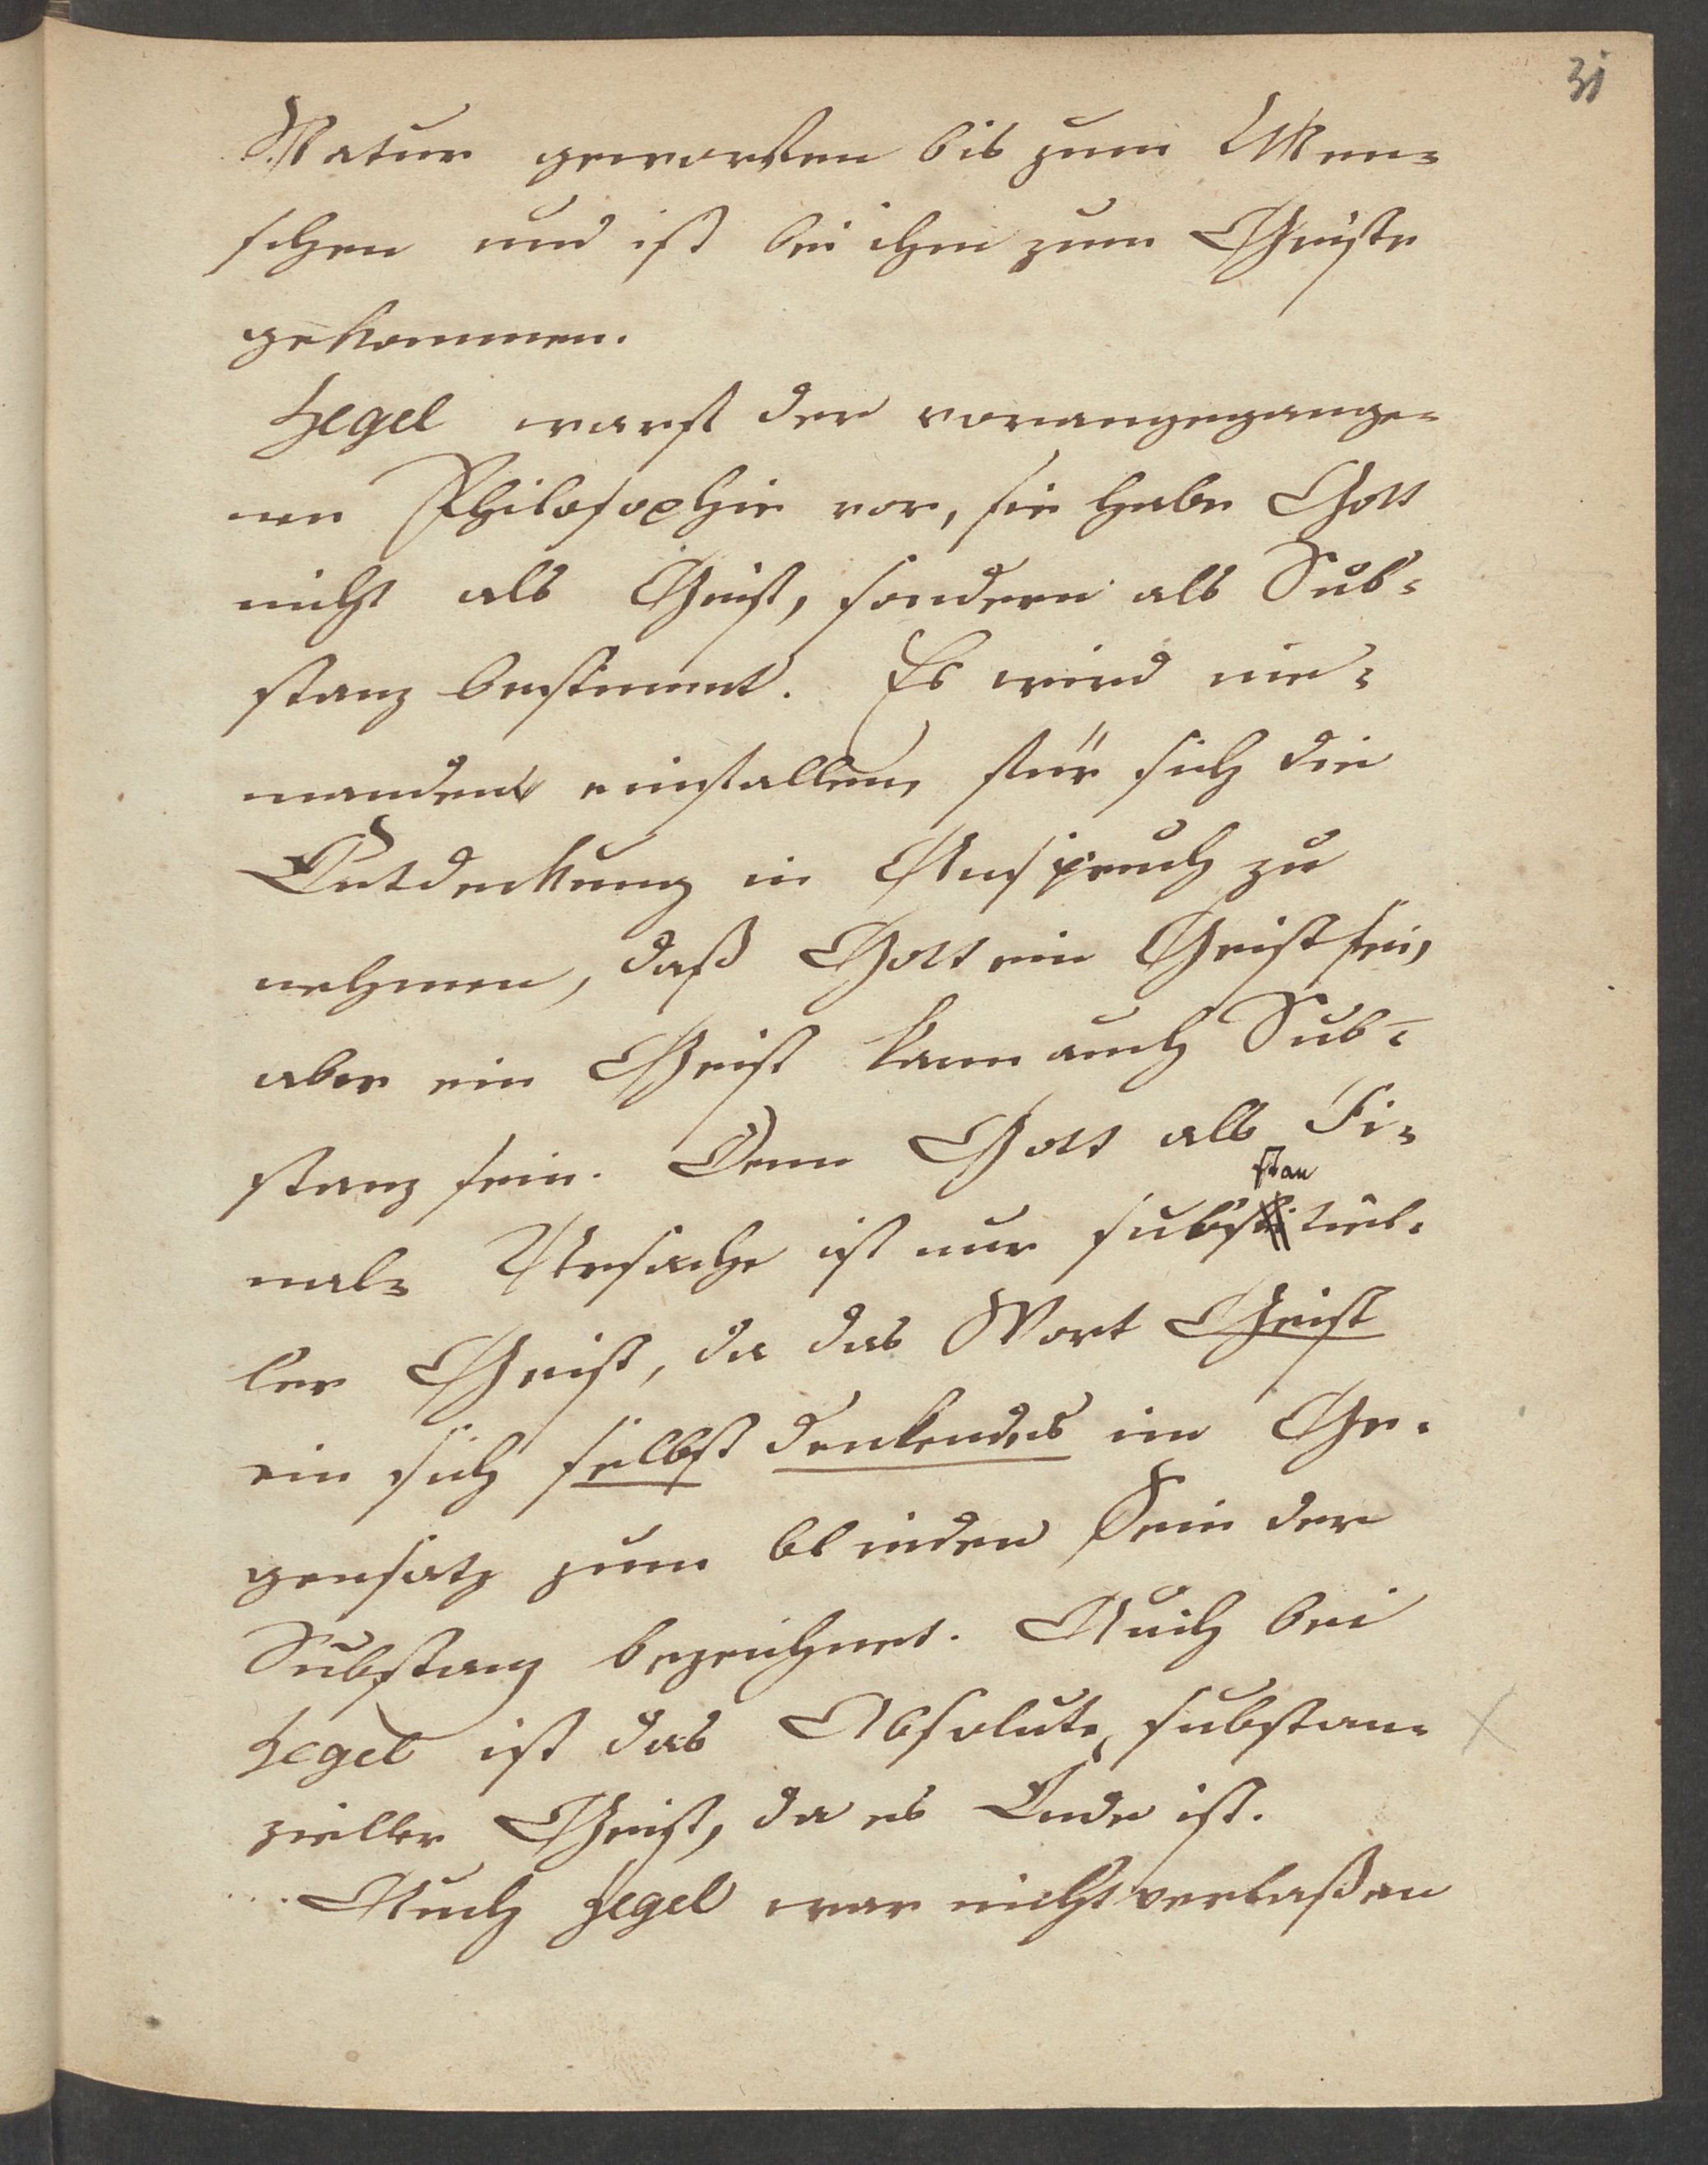 31
Natur geworfen bis zum Men-
schen und ist bei ihm zum Geiste
gekommen.
Hegel warf der vorangegange-
nen Philosophie vor, sie habe Gott
nicht als Geist, sondern als Sub-
stanz bestimmt. Es wird nie-
manden einfallen, für sich die
Entdeckung in Anspruch zu
nehmen, daß Gott ein Geist sei,
aber ein Geist kann auch Sub-
stanz sein. Denn Gott als Fi-
stan
nal- Ursache ist nur substitiel-
ler Geist, da das Wort Geist
ein sich selbst denkendes im Ge-
gensatz zum blinden Sein der
Substanz bezeichnet. Auch bei
Hegel ist das Absolute, substan-
zieller Geist, da es Ende ist.
Auch Hegel war nicht verlaßen